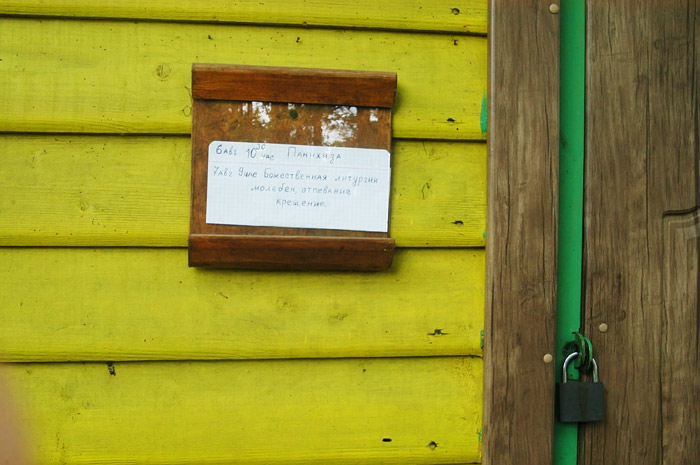 6 авг 10 30 час Панихида
7 авг 9 час Божественная литургия
молебен, отпевание
крещение.